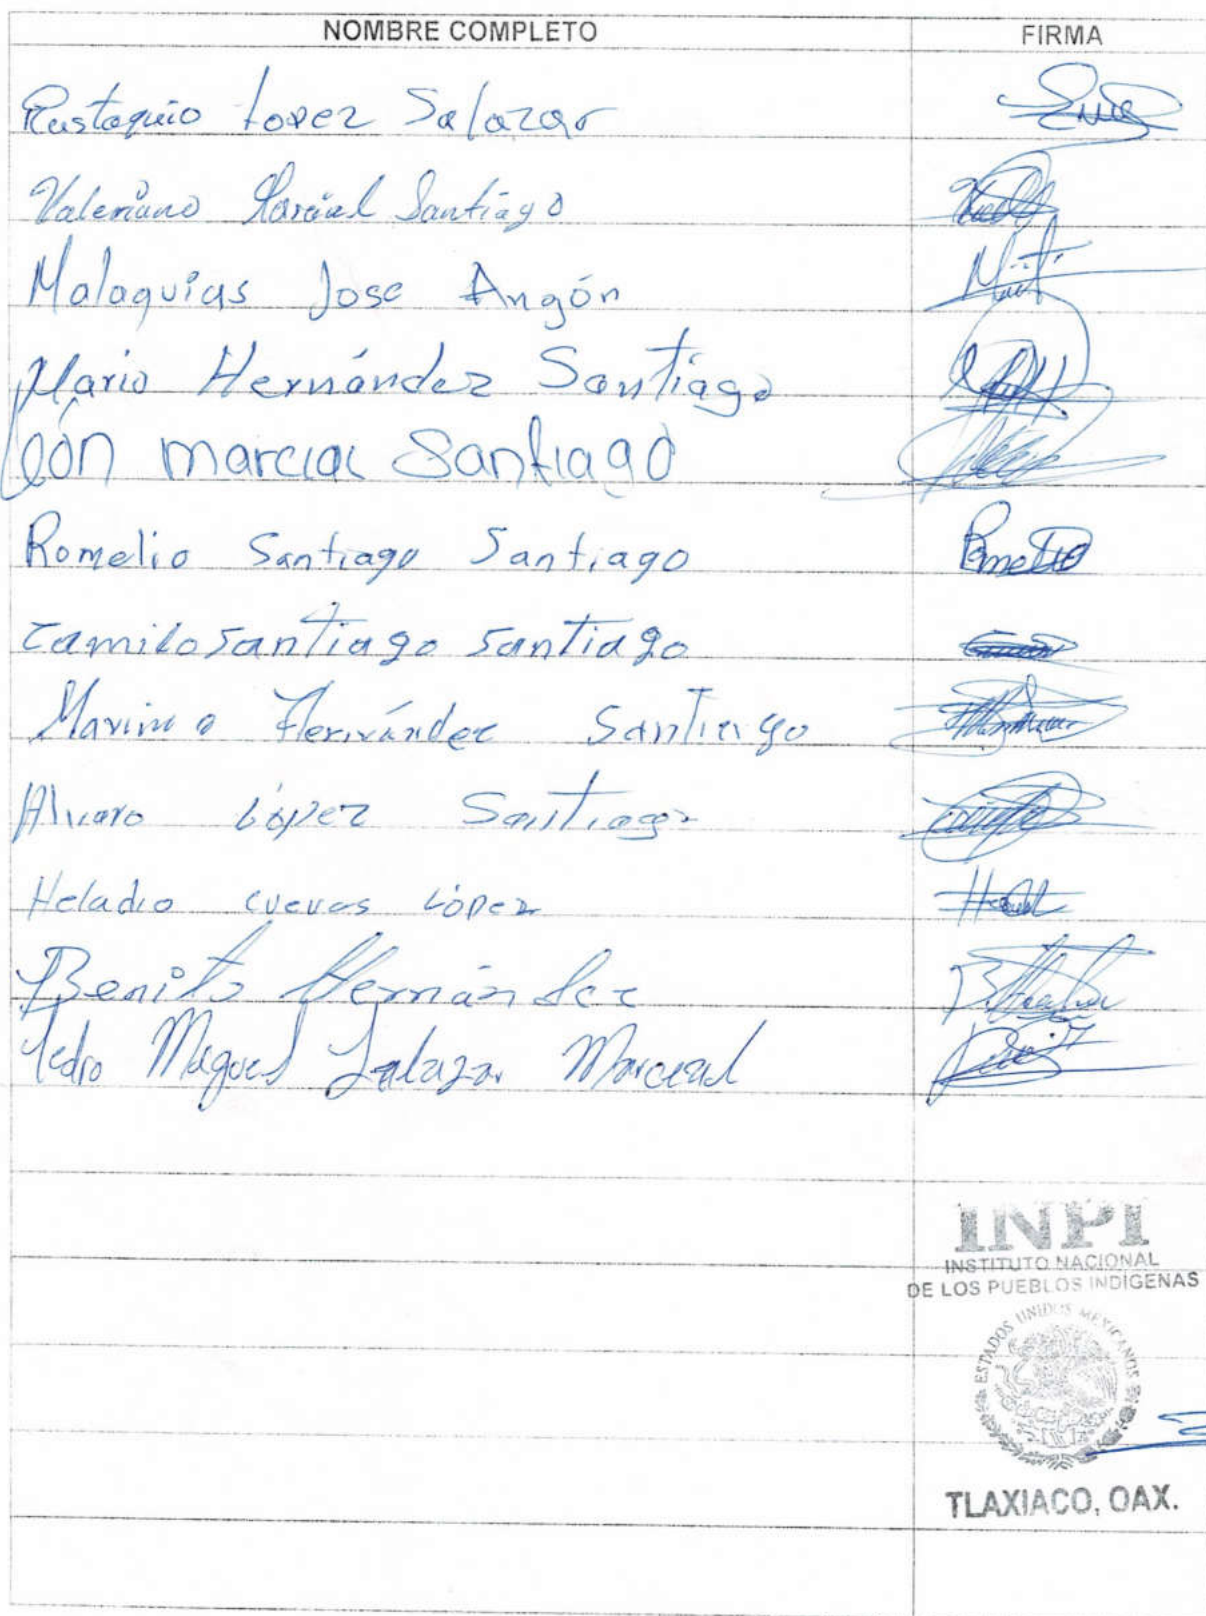 NOMBRE COMPLETO FIRMA
Eustaquio Lopez Salazar
Valeriano Marcial Santiago
Malaquias Jose Angón
Mario Hernández Santiago
León marcial Santiago
Romelio Santiago Santiago Romelio
Camilo Santiago Santiago
Maximo Hernández Santiago
Alvaro López Santiago
Heladio cuevas López
Benito Hernández
Pedro Miguel Salazar Marcial
INPI
INSTITUTO NACIONAL
DE LOS PUEBLOS INDÍGENAS
ESTADOS UNIDOS MEXICANOS
TLAXIACO, OAX.